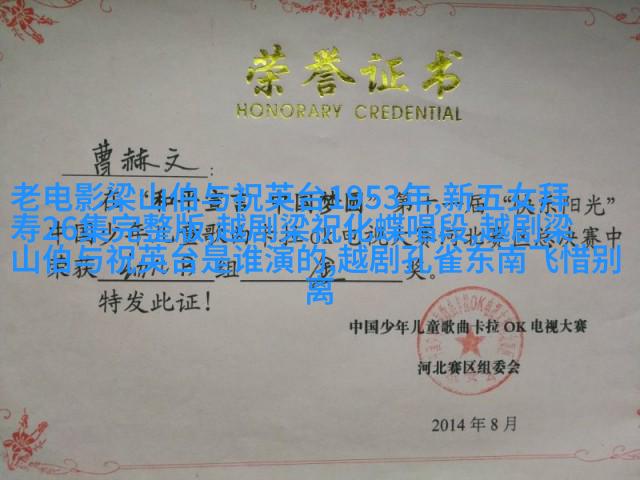 荣誉证书
HONORARY CREDENTIAL
曹赫文:
老电影梁山伯与祝英台1953年,新五女拜
寿26集完整版,越剧梁祝化蝶唱段,越剧梁
山伯与祝英台是谁演的,越剧孔雀东南飞惜别
离
第十一届“快乐阳光”
中国少年儿童歌曲卡拉OK电视大赛河北赛区总决赛中
荣获 幼儿 组 金 奖。
特发此证!
中国少年儿童歌曲卡拉OK电视大赛
河北赛区组委会
2014年8月